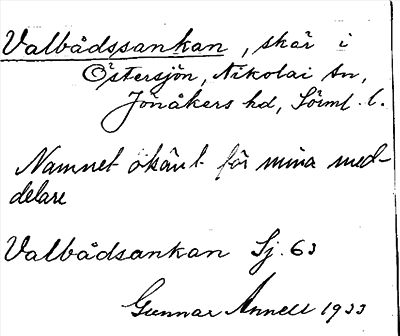 Valbådssankan, skär i
Östersjön, Nikolai sn,
Jönåkers hd, Sörml. l.
Namnet okänt för mina med-
delare
Valbådsankan Sj. 63
Gunnar Annell 1933